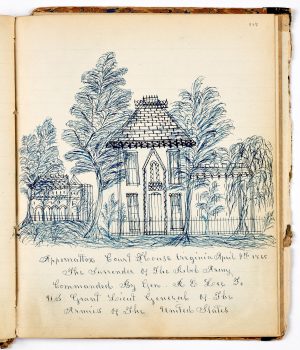 Appomattox Court House Virginia April 9th 1865
The Surrender of The Rebel Army
Commanded By Gen. R E Lee To
U.S. Grant Lieut General of The
Armies of The United States